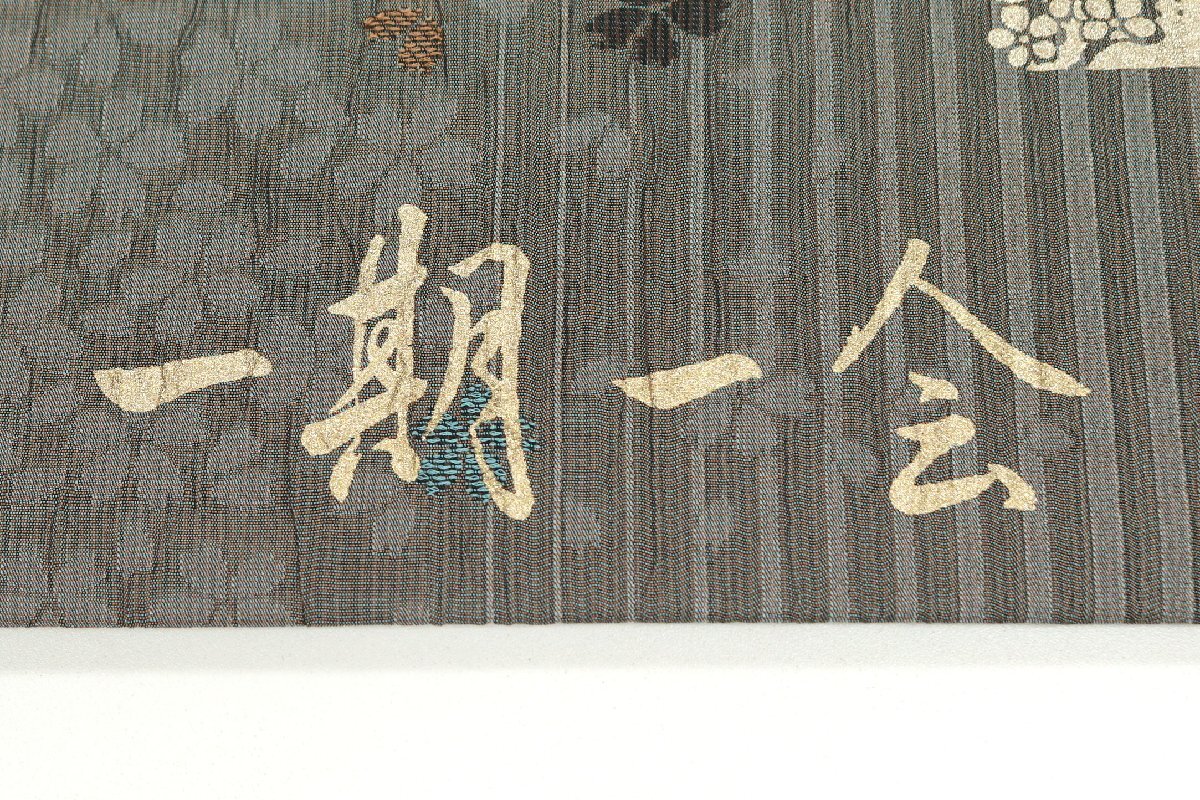 一期一会